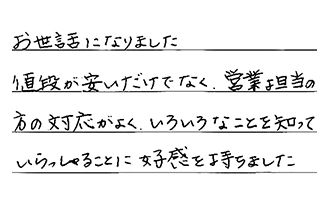 お世話になりました
値段が安いだけでなく、営業担当の
方の対応がよく、いろいろなことを知って
いらっしゃることに好感を持ちました